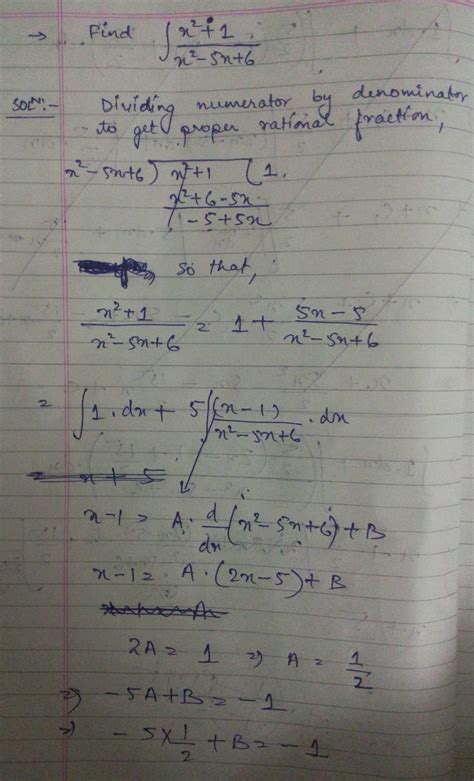 → Find ∫ x²+1 / x²-5x+6
SOLⁿ:- Dividing numerator by denominator
to get proper rational fraction,
x²-5x+6) x²+1 (1.
x²+6-5x
-5+5x
so that,
x²+1 / x²-5x+6 = 1 + 5x-5 / x²-5x+6
= ∫1.dx + 5∫(x-1) / x²-5x+6 .dx
= x+5
x-1 = A. d/dx (x²-5x+6) + B
x-1 = A.(2x-5) + B
2A = 1 ⇒ A = 1/2
⇒ -5A+B = -1
⇒ -5×1/2 + B = -1